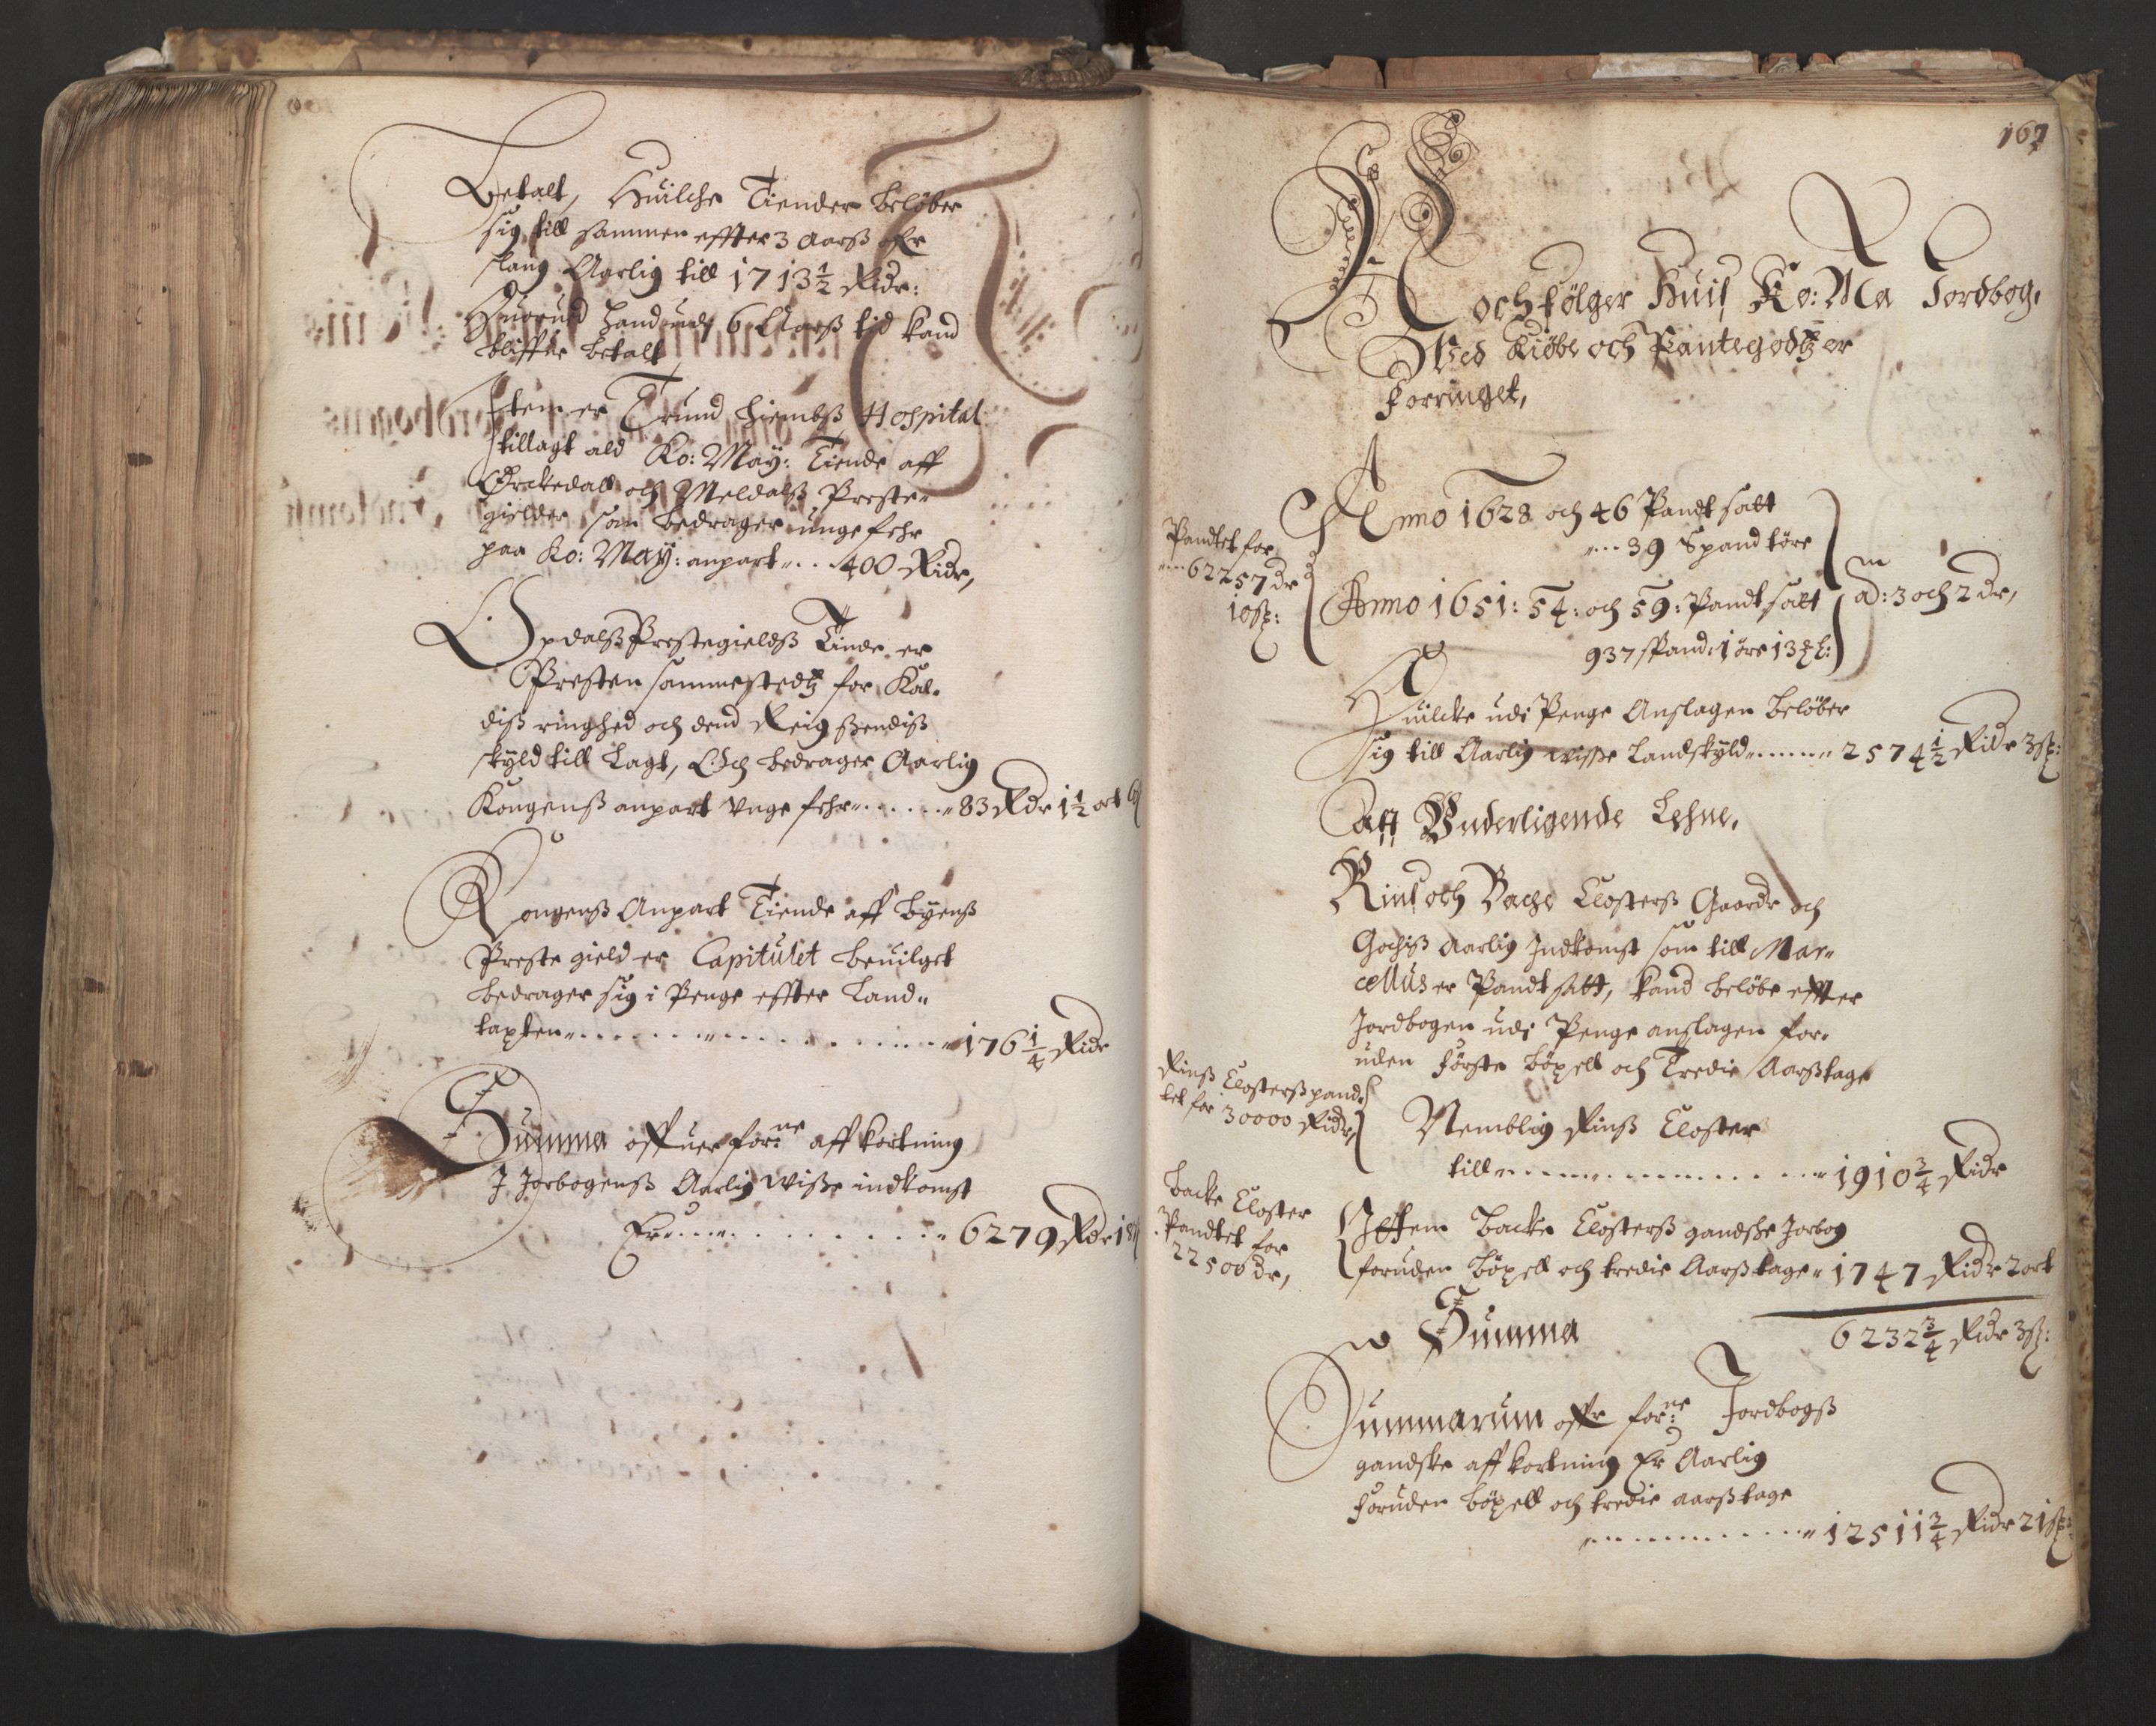 Betalt, Huilche Tiender beløber
sig till sammen effter 3 Aarß
slaug Aarlig till 1713½ Ridr:
Huorud hand udj 6 Aarß tid kand
bliffue betalt
Item er Trundhiembß Hospital
tillagt ald Ko: May: Tiende aff
Ørckedall och Meldalß Preste-
gielder som bedrager ungefehr
paa Ko: May: anpart 400 Ridr,
Opdalß Prestegieldß Tinde er
Presten sammestedtz for Kal-
diß ringhed och dend Reigßendiß
skyld till Lagt, Och bedrager Aarlig
Kongenß anpart Unge fehr 83 Rdr 1½ ort
Kongenß Anpart Tiende aff Byenß
Preste gield er Capitulet beuilget
bedrager sig i Penge effter Land-
taxten 176¼ Ridr
Summa offuer forne affkortning
J Jorbogenß Aarlig Wiße indkomst
Er 6279 Rdr 18
167
Noch følger Huiß Ko: Ma Jordbog,
Med Kiøbe och Pantegodtz er
Forringet,
Anno 1628 och 46 Pandtsatt
39 Spand 1 øre
Pandtet for
62257 dr
10 ß:
Anno 1651: 54: och 59: Pandtsatt
937 Spand: 1 øre 13
ad: 3 och 2 dr,
Huilcke udi Penge Anslagen beløber
sig till Aarlig wisse Landskyld 2574½ Ridr 3ß:
aff Underligende Lehne,
Rinß och Bache Closters Gaarde och
Godziß Aarlig Indkomst som till Mar-
cellus er Pandtsatt, kand beløbe effter
Jordbogen udj Penge anslagen for-
uden Første Bøxell och Tredie Aarßtage
Rinß Closterß pand-
tet for 30000 Ridr
Nemblig Rinß Closter
till 1910¾ Ridr
Backe Closter
Pandtet for
22500 dr,
Jttem Backe Closterß gandsche Jorbog
foruden Bøxell och tredie Aarßtage 1747 Ridr 2 ort
Summa 6232¾ Ridr 3ß:
Summarum offr forne Jordbogß
gandske affkortning Er Aarlig
Foruden Bøxell och tredie aarßtage
12511¾ Ridr 21ß: